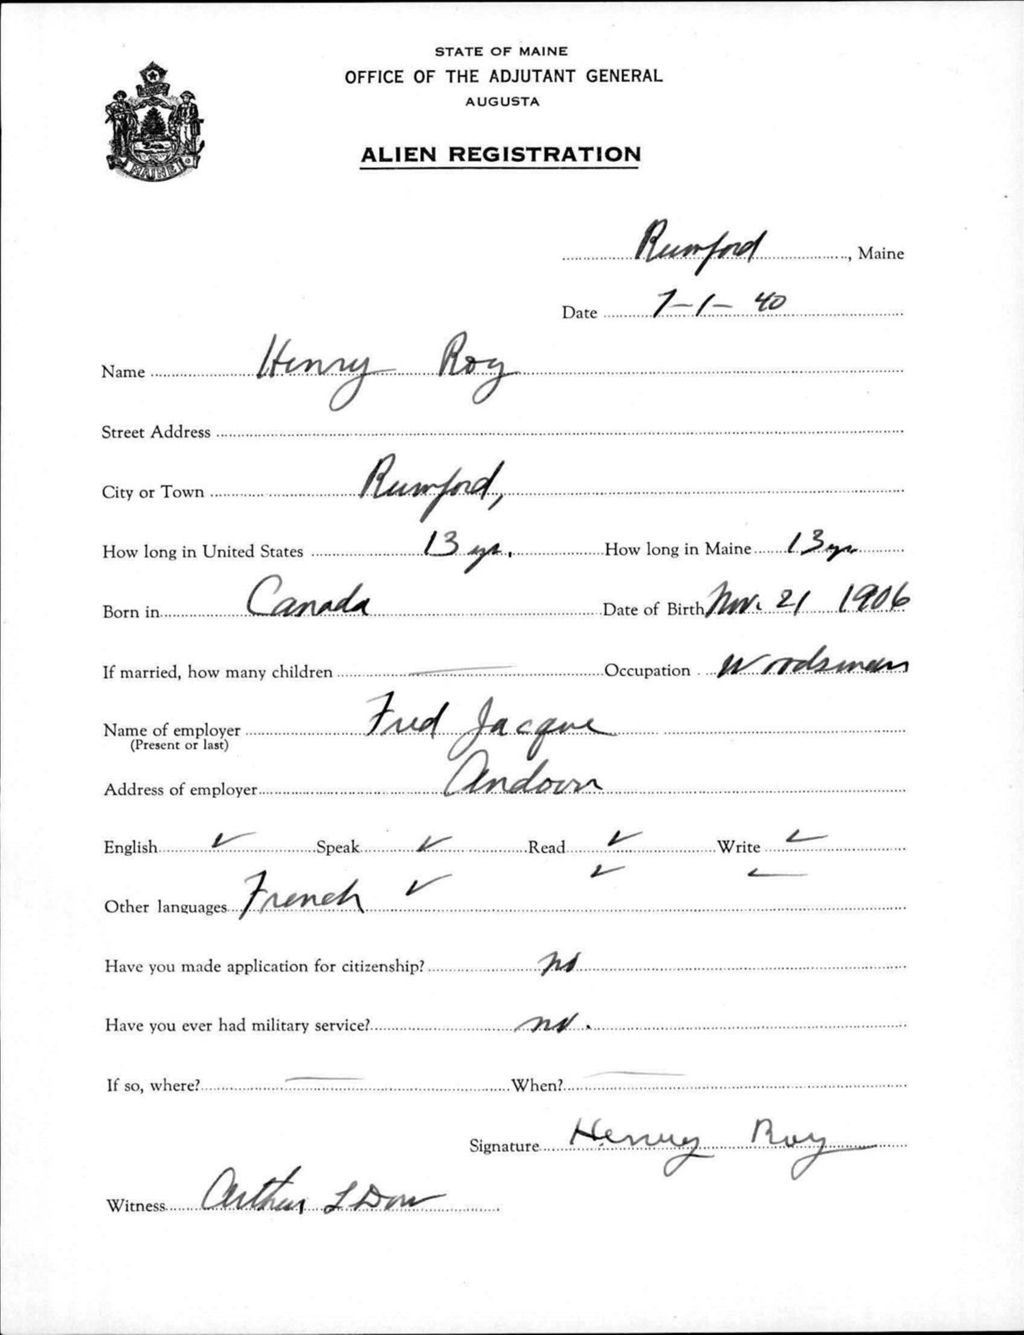 STATE OF MAINE
OFFICE OF THE ADJUTANT GENERAL
AUGUSTA
ALIEN REGISTRATION
MAINE
Rumford, Maine
Date 7-1-40
Name Henry Roy
Street Address
City or Town Rumford,
How long in United States 13 yrs. How long in Maine 13 yrs
Born in Canada Date of Birth Nov. 21 1906
If married, how many children — Occupation Woodsman
Name of employer Fred Jacque
(Present or last)
Address of employer Andover
English ✓ Speak ✓ Read ✓ Write ✓
Other languages French ✓ ✓ ✓
Have you made application for citizenship? no
Have you ever had military service? no.
If so, where? — When? —
Signature Henry Roy
Witness Arthur L Dow